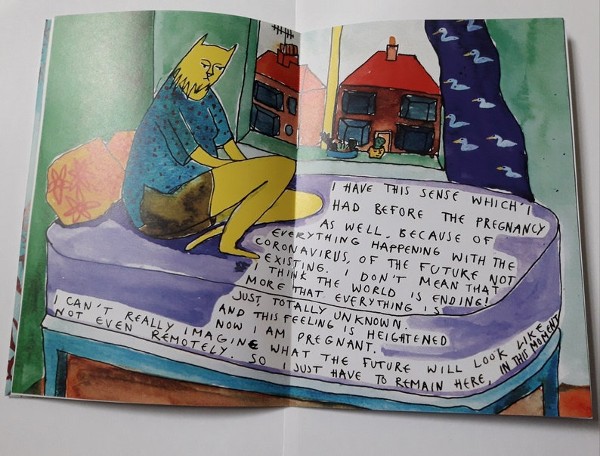 I HAVE THIS SENSE WHICH I
HAD BEFORE THE PREGNANCY
AS WELL, BECAUSE OF
EVERYTHING HAPPENING WITH THE
CORONAVIRUS, OF THE FUTURE NOT
EXISTING. I DON'T MEAN THAT
I THINK THE WORLD IS ENDING!
MORE THAT EVERYTHING IS
JUST TOTALLY UNKNOWN.
AND THIS FEELING IS HEIGHTENED
NOW I AM PREGNANT.
I CAN'T REALLY IMAGINE WHAT THE FUTURE WILL LOOK LIKE
NOT EVEN REMOTELY. SO I JUST HAVE TO REMAIN HERE, IN THIS MOMENT